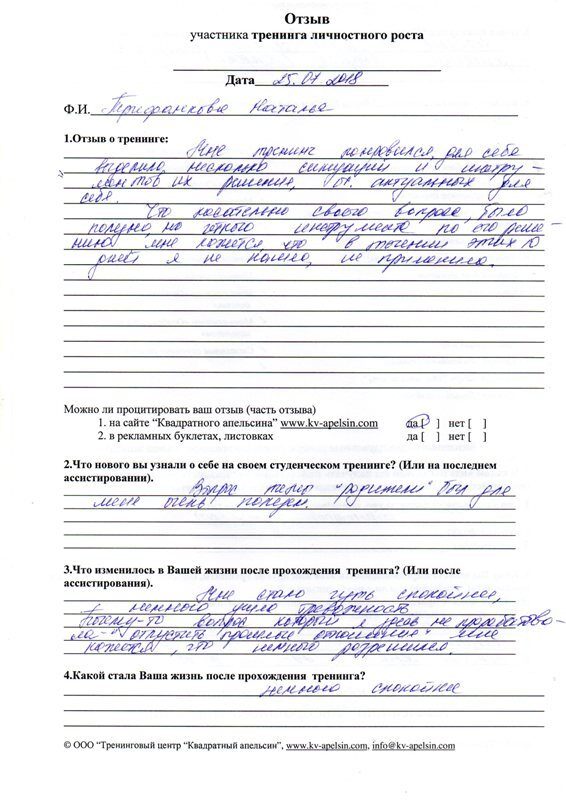 Отзыв
участника тренинга личностного роста
Дата 25.07 2018
Ф.И. Трифанкова Наталья
1.Отзыв о тренинге:
Мне тренинг понравился, для себя
выделила несколько ситуаций и инстру-
ментов их решения, оч. актуальных для
себя.
Что касательно своего вопроса, было
полезно, но четкого инструмента по его реше-
нию мне кажется, что в течении этих 10
дней я не нашла, не применила.
Можно ли процитировать ваш отзыв (часть отзыва)
1. на сайте “Квадратного апельсина” www.kv-apelsin.com да [ ] нет [ ]
2. в рекламных буклетах, листовках да [ ] нет [ ]
2.Что нового вы узнали о себе на своем студенческом тренинге? (Или на последнем
ассистировании).
Вопрос темы "родители" был для
меня очень полезен.
3.Что изменилось в Вашей жизни после прохождения тренинга? (Или после
ассистирования).
Мне стало чуть спокойнее,
+ немного ушла тревожность
Почему-то вопрос который я здесь не прорабатыва-
ла - "отпустить прошлые отношения" мне
кажется, что немного разрешился.
4.Какой стала Ваша жизнь после прохождения тренинга?
немного спокойнее
© ООО “Тренинговый центр “Квадратный апельсин”, www.kv-apelsin.com, info@kv-apelsin.com